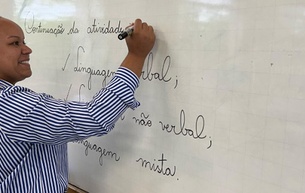 Continuação da atividade
✓ Linguagem verbal;
não verbal;
mista.